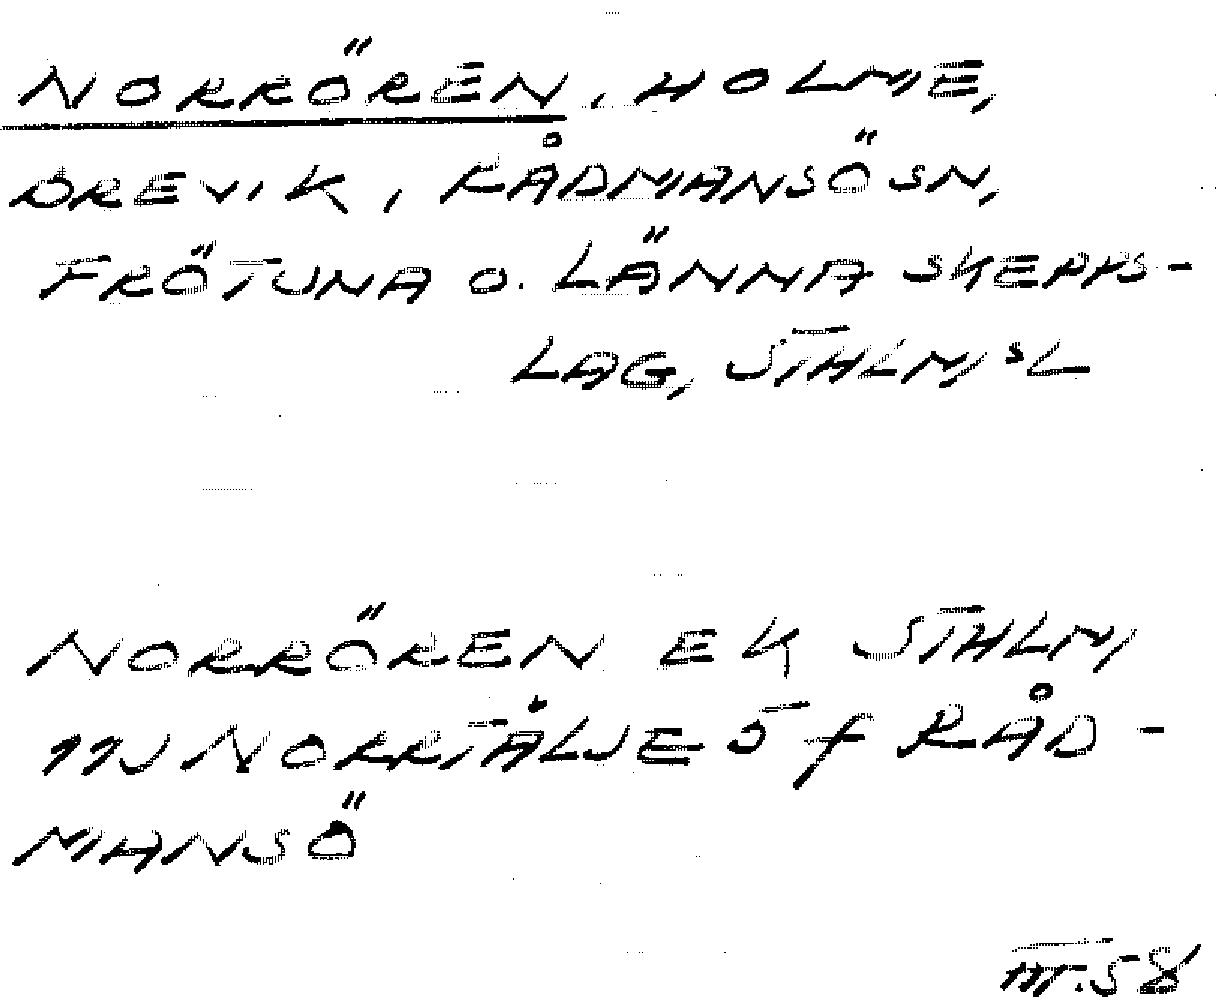 NORRÖREN, HOLME,
DREVIK, RÅDMANSÖ SN,
FRÖTUNA O. LÄNNA SKEPPS-
LAG, STHLMS L
NORRÖREN EK STHLM,
11J NORRTÄLJE 5 f RÅD-
MANSÖ
III.58